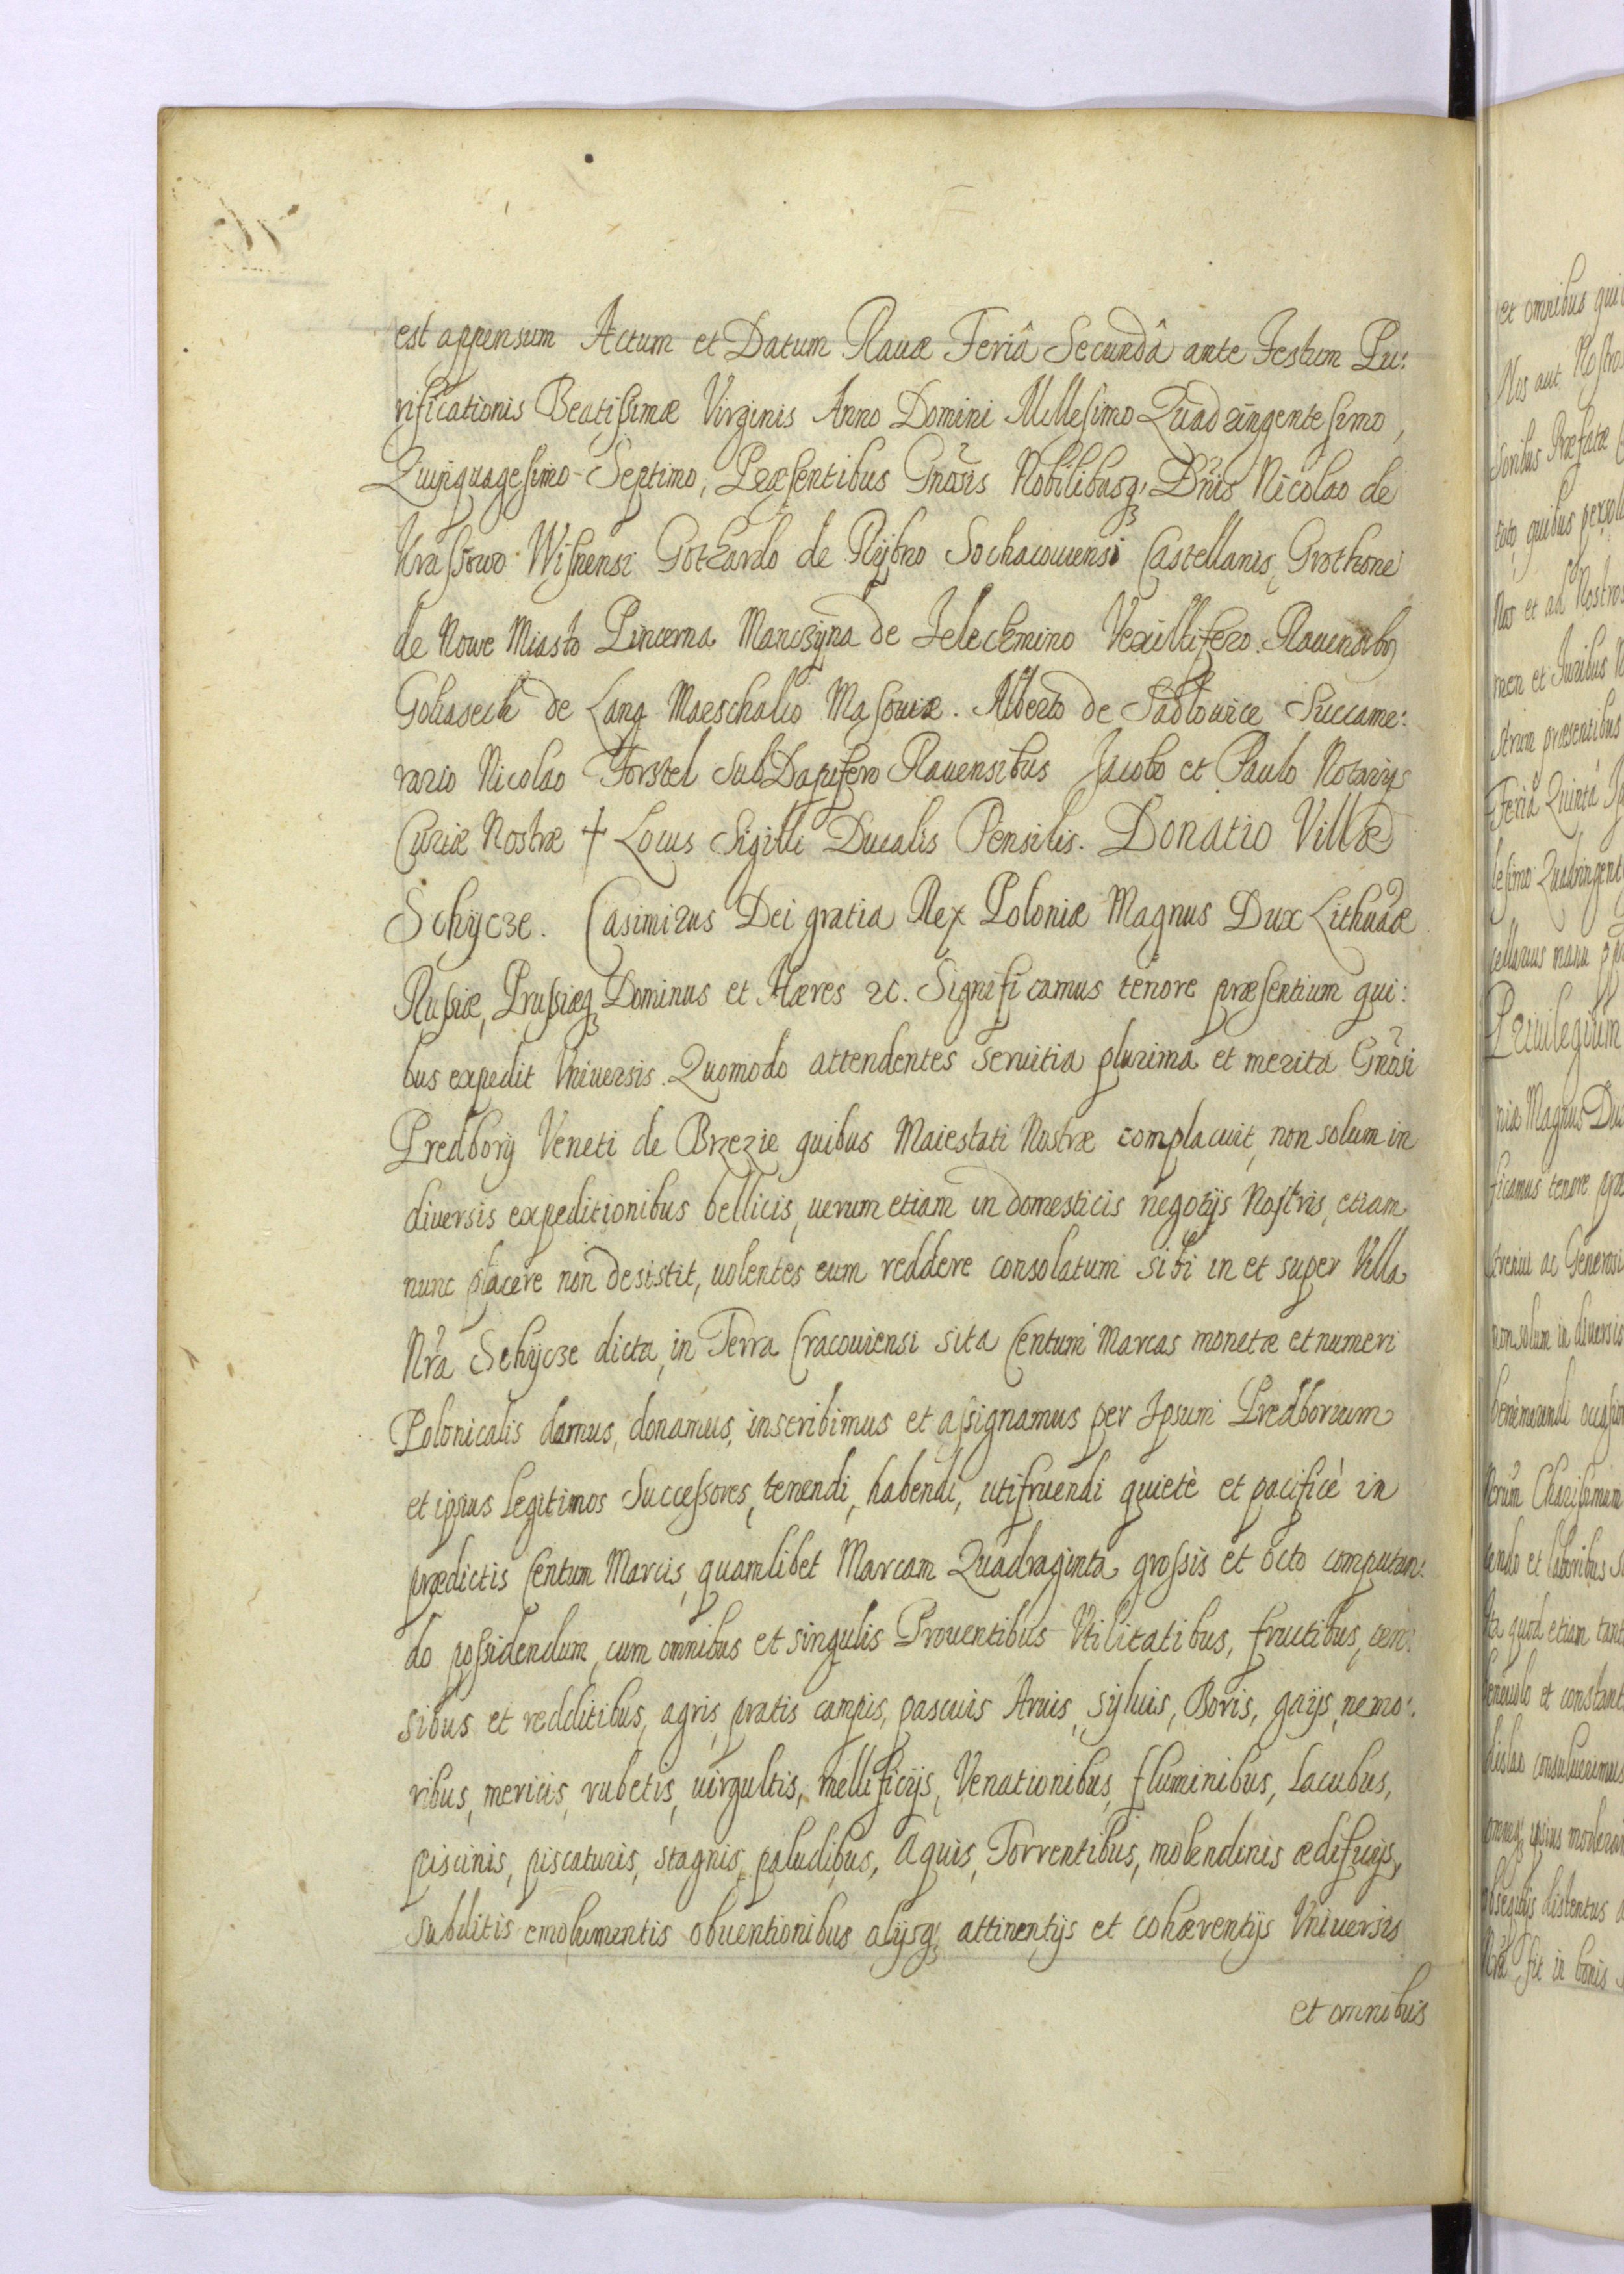 est appensum Actum et Datum Rauæ Feriâ Secundâ ante Festum Pu:
rificationis Beatißimæ Virginis Anno Domini Millesimo Quadringentesimo,
Quinquagesimo Septimo, Præsentibus Gnõsis Nobilibusq, Dñis Nicolao de
Kraßowo Wisnensi Gothardo de Rybno Sochacouiensi Castellanis, Grothone
de Nowe Miasto Pincerna Manczyna de Jelechmino Vexillifero Rauensibꝯ
Goliasech de Lang Marschalco Masouiæ. Alberto de Sadlowice Succame:
rario Nicolao Forstel SubDapifero Rauensibus Jacobo et Paulo Notarijs
Curiæ Nostræ + Locus Sigilli Ducalis Pensilis. Donatio Villæ
Schycze. Casimirus Dei gratia Rex Poloniæ Magnus Dux Lithuãæ
Rußiæ, Prußiæq Dominus et Hæres &c. Significamus tenore præsentium qui:
bus expedit Vniuersis. Quomodo attendentes seruitia plurima et merita Gnõsi
Predborij Veneti de Brzezie quibus Maiestati Nostræ complacuit, non solum in
diuersis expeditionibus bellicis, uerum etiam in domesticis negotijs Nostris, etiam
nunc placere non desistit, uolentes eum reddere consolatum sibi in et super Villa
Nrã Schycze dicta, in Terra Cracouiensi sita Centum Marcas monetæ et numeri
Polonicalis damus, donamus, inscribimus et aßignamus per Ipsum Predborium
et ipsius legitimos Succeßores, tenendi, habendi, utifruendi quietè et pacificè in
prædictis Centum Marcis, quamlibet Marcam Quadraginta großis et octo computan:
do poßidendum, cum omnibus et singulis Prouentibus Vtilitatibus, fructibus, cen:
sibus et redditibus, agris, pratis campis, pascuis Aruis, syluis, Boris, gaijs, nemo:
ribus, mericis, rubetis, uirgultis, mellificijs, Venationibus, fluminibus, Lacubus,
piscinis, piscaturis, stagnis, paludibus, Aquis, Torrentibus, molendinis ædificijs,
subditis emolumentis obuentionibus alijsq, attinentijs et cohærentijs Vniuersis
et omnibus